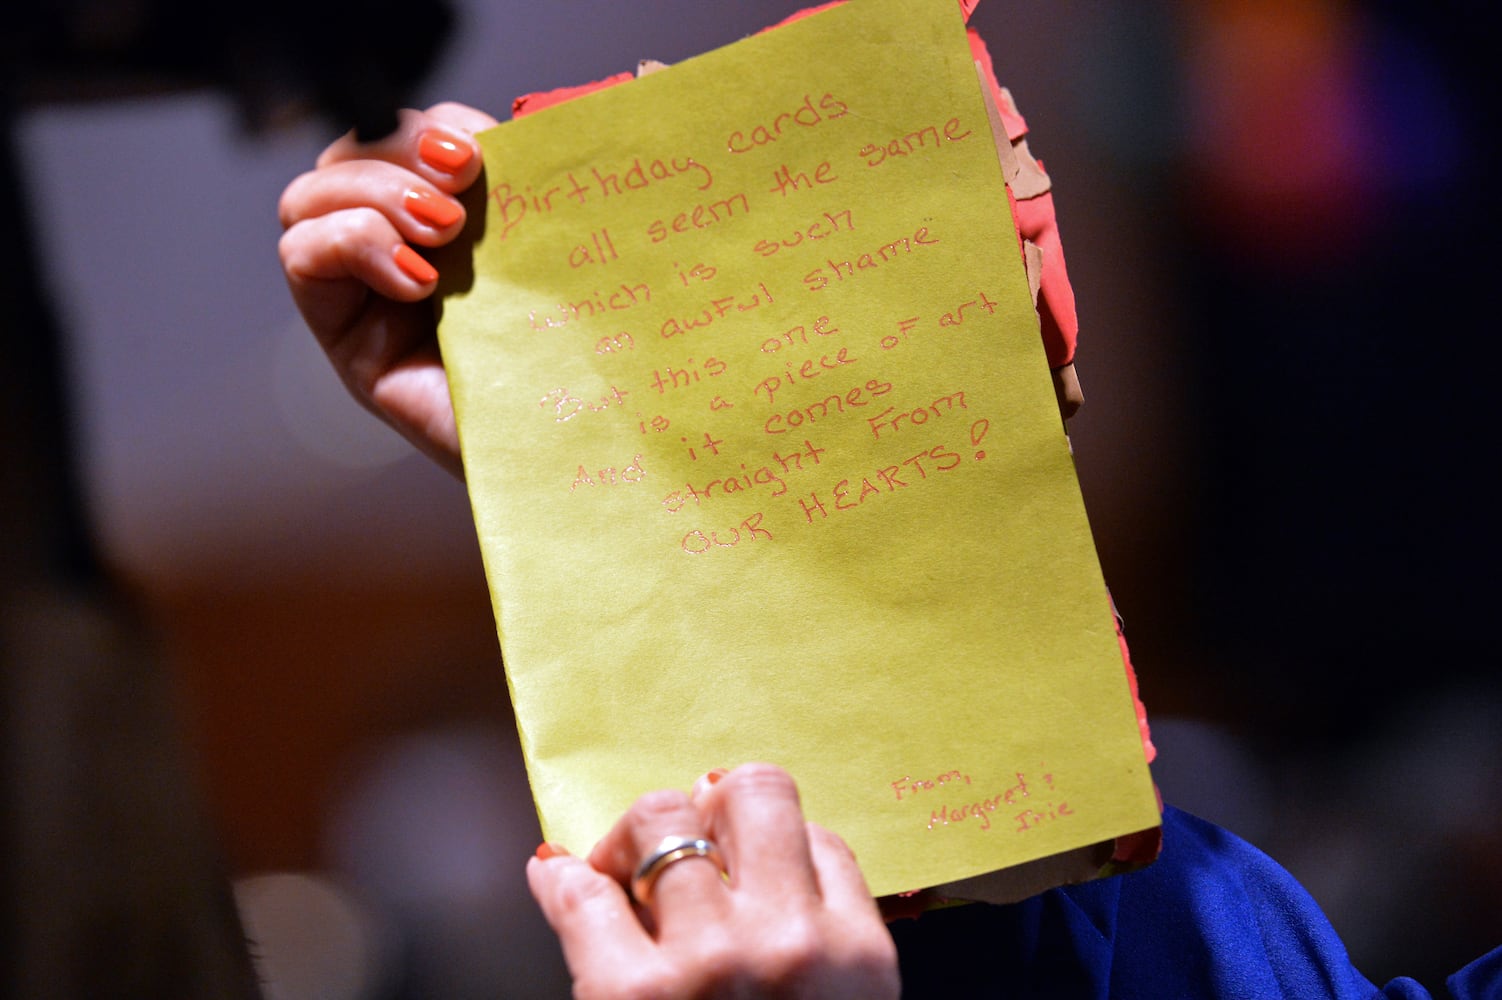 Birthday cards
all seem the same
Which is such
an awful shame
But this one
is a piece of art
And it comes
straight From
OUR HEARTS!
From,
Margaret &
Irie